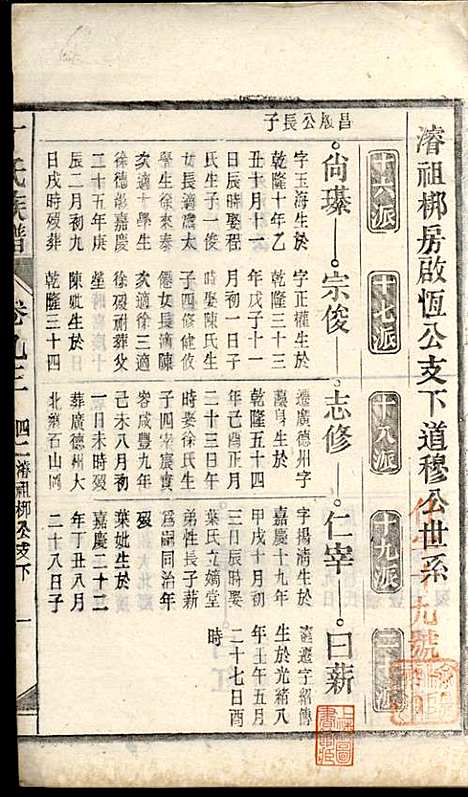 濬祖梆房啟恆公支下道穆公世系
十六派
十七派
十八派
十九派
昌啟公長子
尚瑧
宗俊
志修
仁宰
曰薪
字玉海生於
乾隆十年乙
丑十月十一
日辰時娶程
氏生子一俊
女長適陳太
學生徐來泰
次適太學生
徐德彰嘉慶
二十五年庚
辰二月初九
日戌時歿葬
字正權生於
乾隆三十三
年戊子十一
月初一日子
時娶陳氏生
子四修健攸
僊女長適陳
次適徐三適
徐歿祔葬父
塋
陳妣生於
乾隆三十四
遷廣德州字
蓋身生於
乾隆五十四
年己酉正月
二十三日午
時娶徐氏生
子四宰宸寅
容咸豐九年
己未八月初
一日未時歿
葬廣德州大
北葉百山岡
字揚清生於
嘉慶十九年
甲戌十月初
八日辰時娶
葉氏立嫡堂
弟性長子薪
爲嗣同治年
歿
葉妣生於
嘉慶二十二
年丁丑八月
二十八日子
遷字紹傳
生於光緒八
年壬午五月
二十七日酉
時
氏族譜
卷九三
四二濬祖梆公支下
一